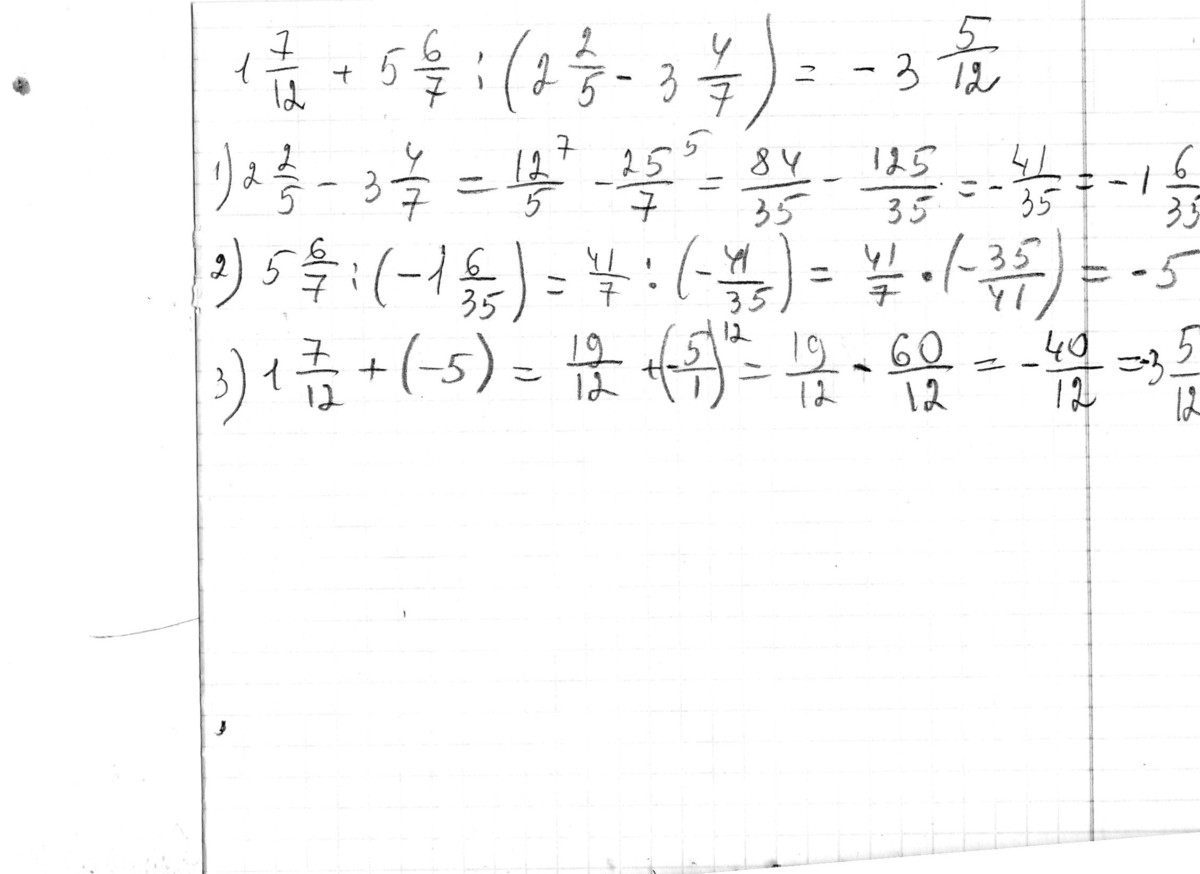 1 7/12 + 5 6/7 : (2 2/5 - 3 4/7) = - 3 5/12
1) 2 2/5 - 3 4/7 = 12/5 ⁷ - 25/7 ⁵ = 84/35 - 125/35 = - 41/35 = - 1 6/35
2) 5 6/7 : (- 1 6/35) = 41/7 : (- 41/35) = 41/7 · (- 35/41) = - 5
3) 1 7/12 + (-5) = 19/12 + (- 5/1) ¹² = 19/12 - 60/12 = - 40/12 = -3 5/12